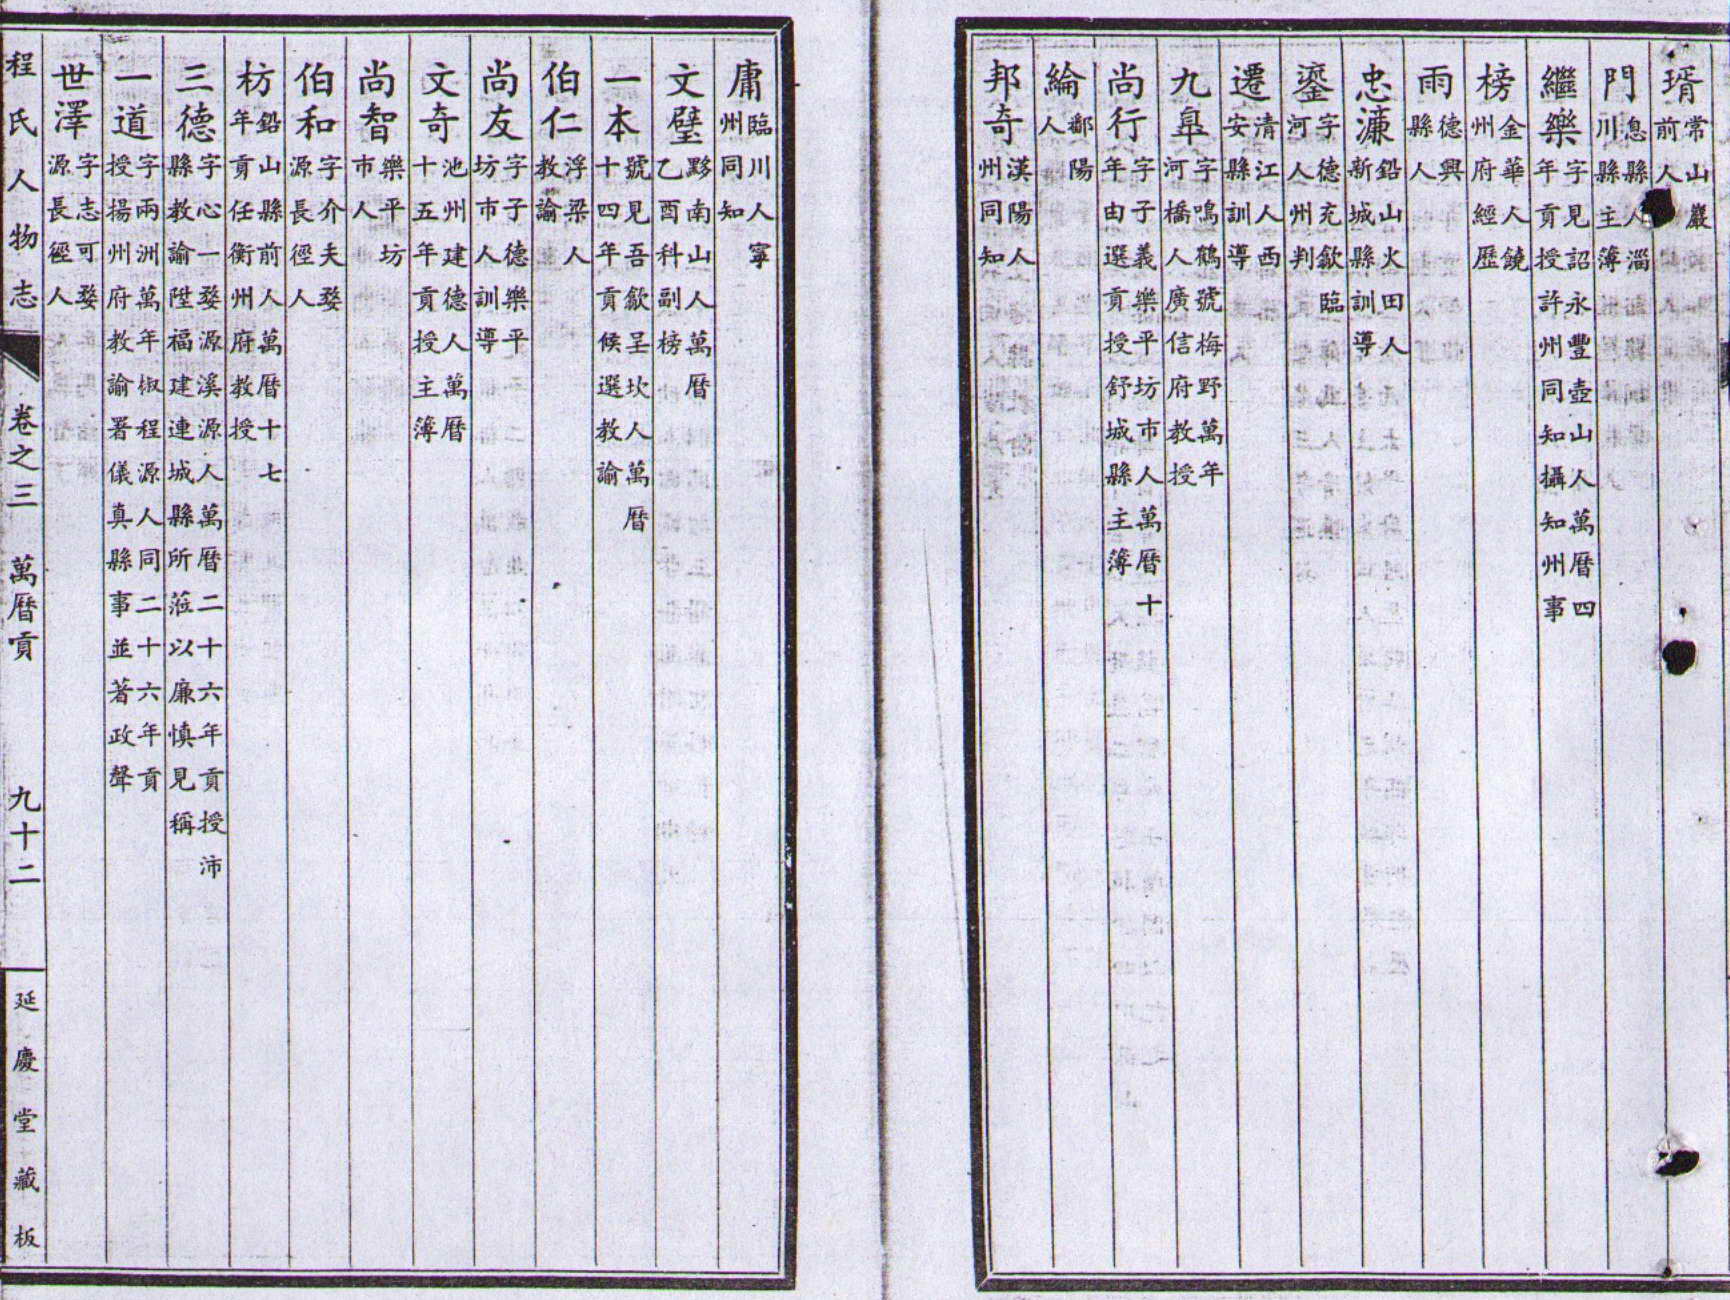 琄常山巖前人
門息縣人淄川縣主簿
繼樂字見詔永豐壺山人萬曆四年貢授許州同知攝知州事
榜金華人饒州府經歷
雨德興縣人
忠濂鉛山火田人新城縣訓導
鎏字德充歙臨河人州判
遷清江人西安縣訓導
九臯字鳴鶴號梅野萬年河橋人廣信府教授
尚行字子義樂平坊市人萬曆十年由選貢授舒城縣主簿
綸鄱陽人
邦奇漢陽人州同知
庸臨川人寧州同知
文璧黟南山人萬曆乙酉科副榜
一本號見吾歙呈坎人萬曆十四年貢候選教諭
伯仁浮梁人教諭
尚友字子德樂平坊市人訓導
文奇池州建德人萬曆十五年貢授主簿
尚智樂平坊市人
伯和字介夫婺源長徑人
枋鉛山縣前人萬曆十七年貢任衡州府教授
三德字心一婺源溪源人萬曆二十六年貢授沛縣教諭陞福建連城縣所蒞以廉慎見稱
一道字兩洲萬年椒程源人同二十六年貢授揚州府教諭署儀真縣事並著政聲
世澤字志可婺源長徑人
程氏人物志 卷之三 萬曆貢 九十二 延慶堂藏板